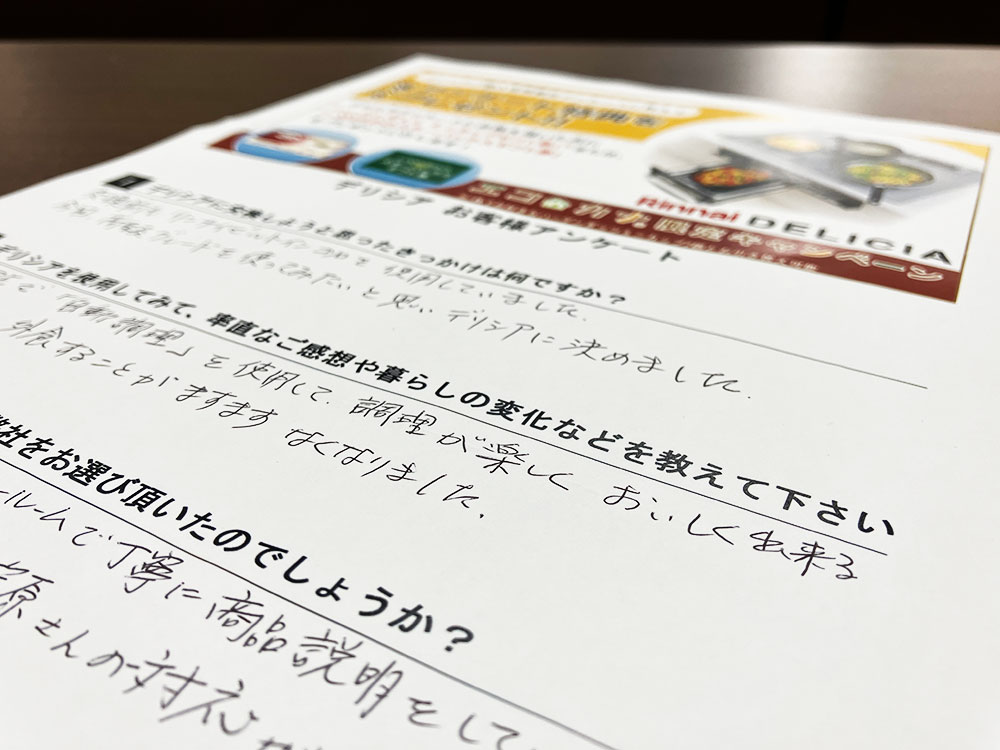 Rinnai DELICIA
エコ&カナ同窓キャンペーン
デリシア お客様アンケート
デリシアに交換しようと思ったきっかけは何ですか?
使用していました。
グレードを使ってみたいと思いデリシアに決めました。
デリシアを使用してみて、率直なご感想や暮らしの変化などを教えて下さい
「自動調理」を使用して、調理が楽しくおいしく出来る
外食することがますますなくなりました。
社をお選び頂いたのでしょうか?
ルームで丁寧に商品説明をして
原さんの対応